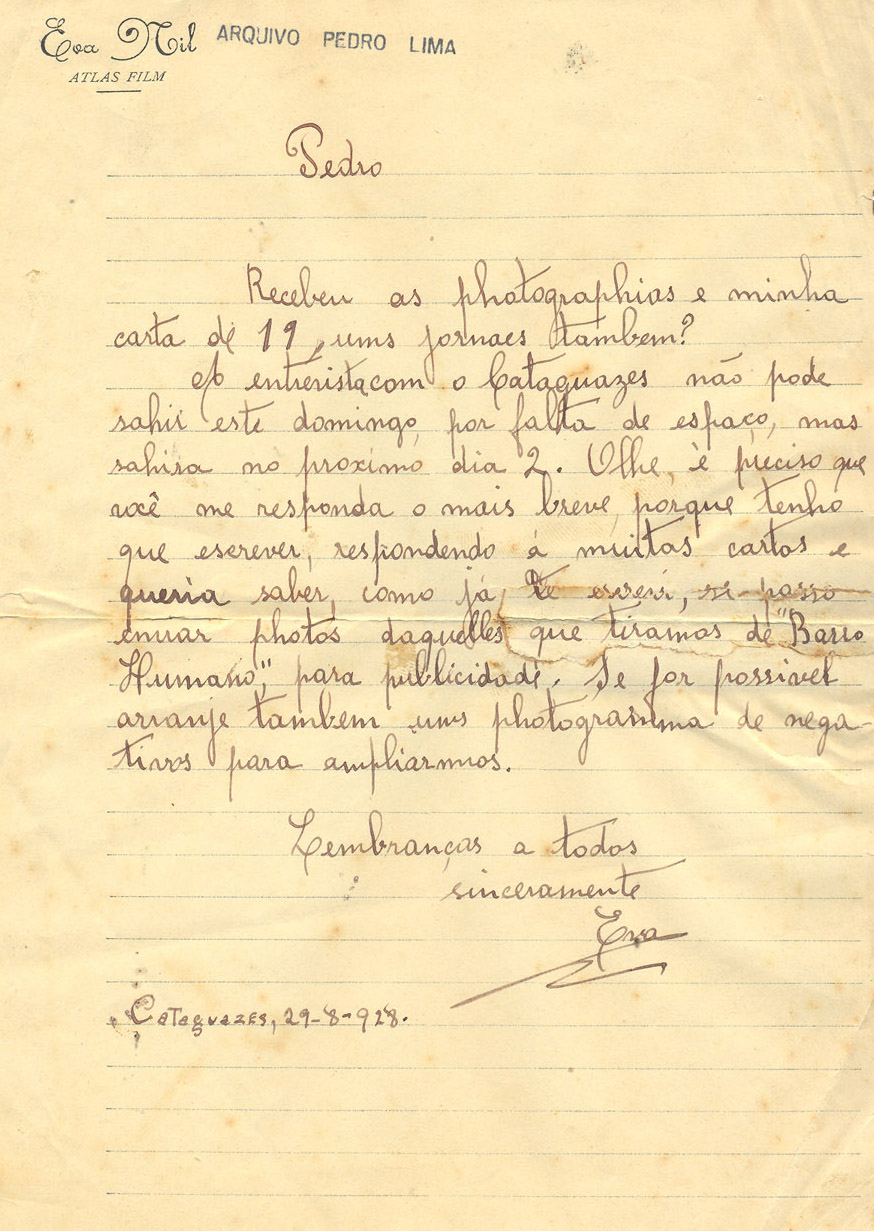 Eva Nil ARQUIVO PEDRO LIMA
ATLAS FILM
Pedro
Recebeu as photographias e minha
carta de 19, ums jornaes tambem?
A entrevista com o Cataguazes não pode
sahir este domingo, por falta de espaço, mas
sahira no proximo dia 2. Olhe, è preciso que
você me responda o mais breve, porque tenho
que escrever, respondendo á muitas cartas e
queria saber, como já te escrevi, si posso
enviar photos daquelles que tiramos de "Barro
Humano", para publicidade. Se for possivel
arranje tambem ums photogramma de nega-
tivos para ampliarmos.
Lembranças a todos
sinceramente
Eva
Cataguazes, 29-8-928.